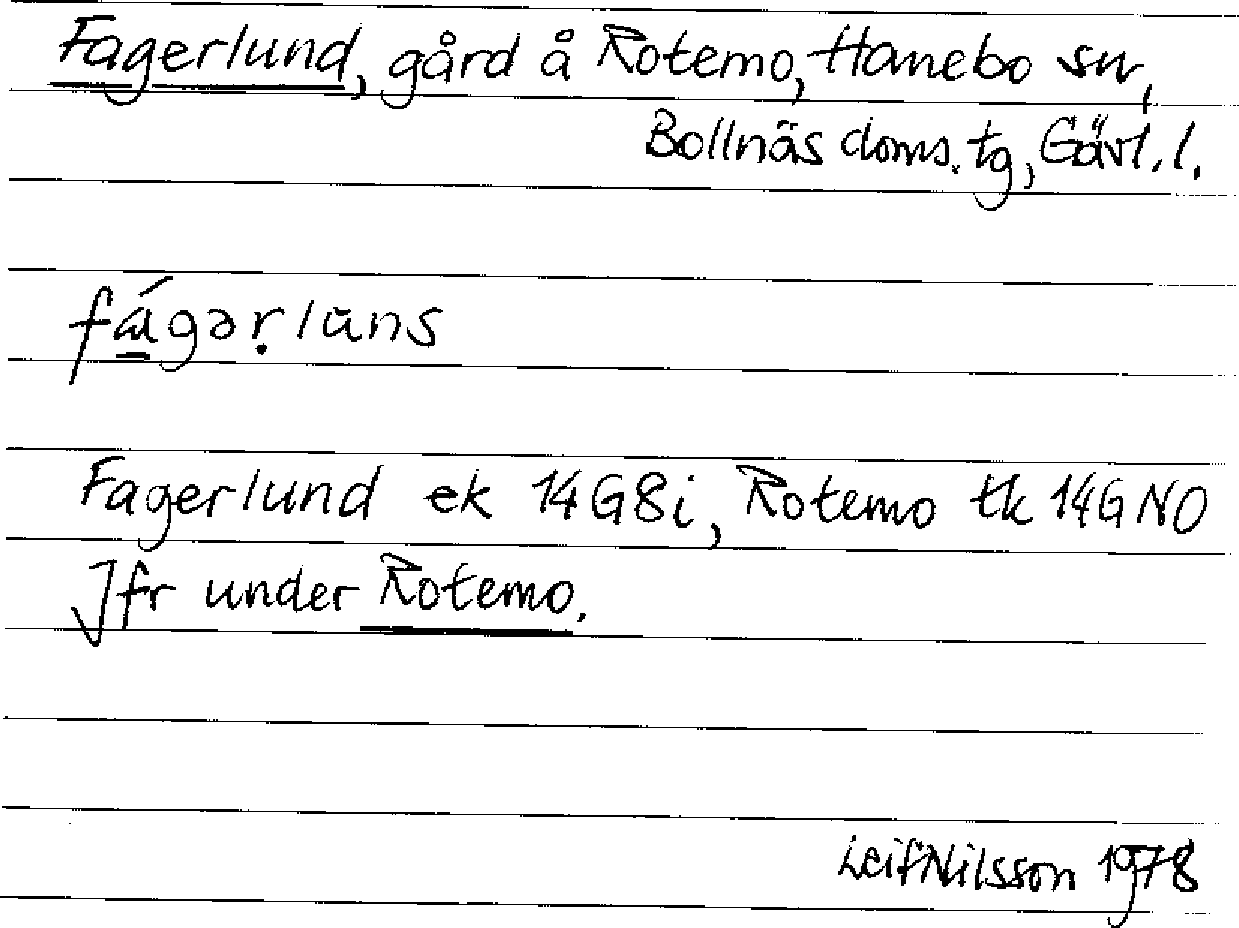 Fagerlund, gård å Rotemo, Hanebo sn,
Bollnäs doms. tg, Gävl. l.
fágəṛlūns
Fagerlund ek 14G8i, Rotemo tk 14G NO
Jfr under Rotemo.
Leif Nilsson 1978